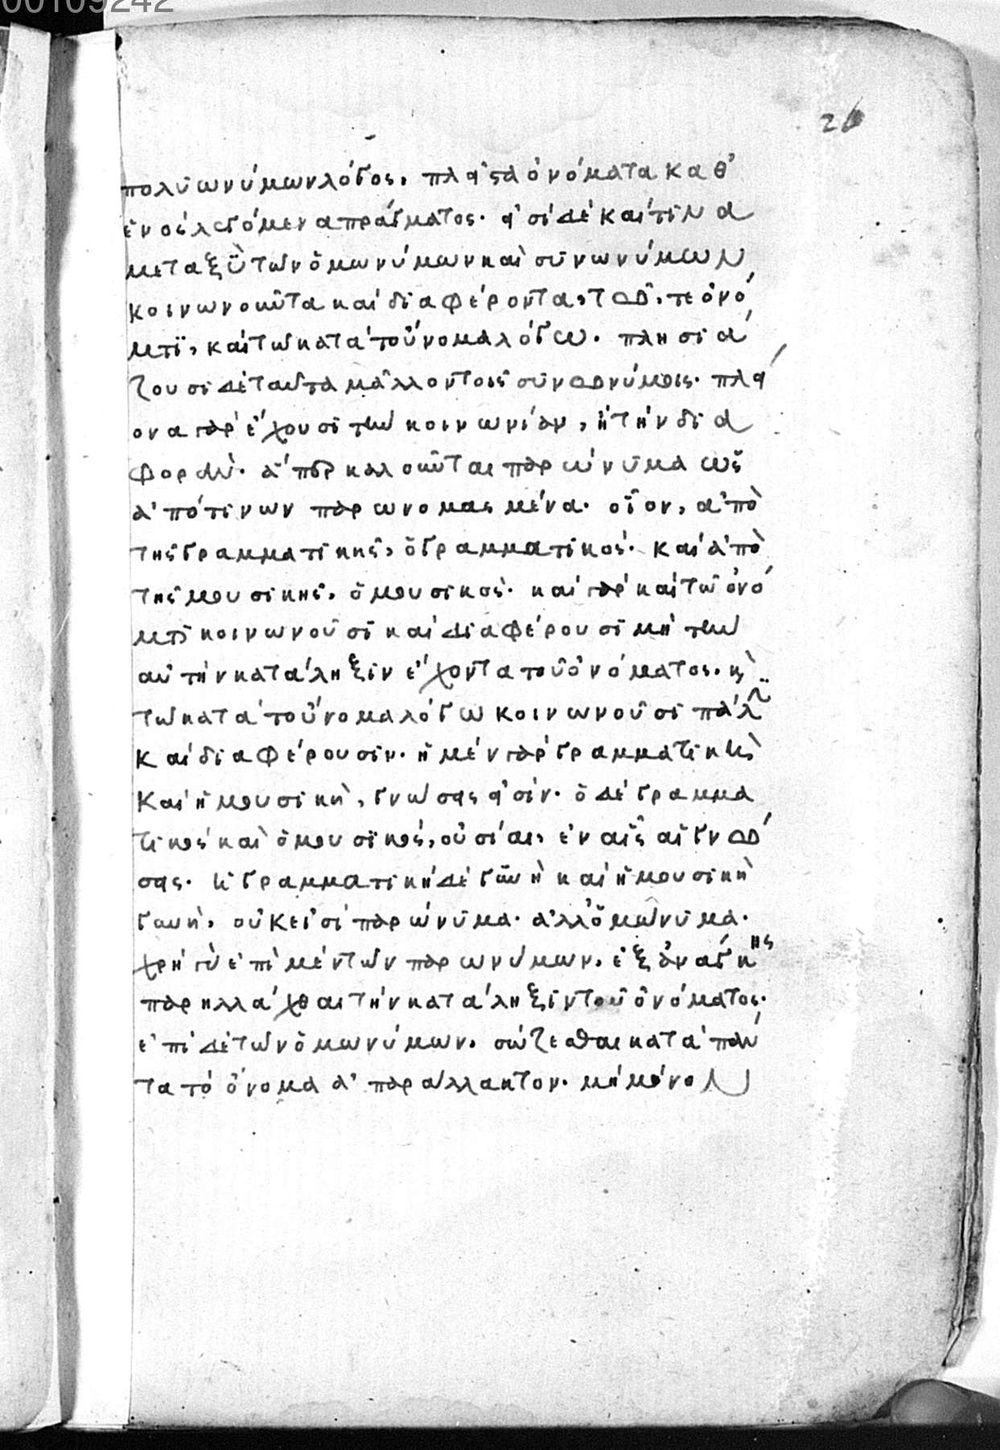 00109242
26
πολυωνύμων λόγος, πλεῖστα ὀνόματα καθ'
ἑνὸς λεγόμενα πράγματος. εἰσὶ δὲ καί τινα
μεταξὺ τῶν ὁμωνύμων καὶ συνωνύμων
κοινωνοῦντα καὶ διαφέροντα, τῶ τε ὀνό
μτι, καὶ τῶ κατὰ τοὔνομα λόγω. πλησιά
ζουσι δὲ ταῦτα μᾶλλον τοῖς συνωνύμοις. πλεί
ονα γὰρ ἔχουσι τὴν κοινωνίαν, ἢ τὴν δια
φοράν. ἅπερ καλοῦνται παρώνυμα ὡς
ἀπό τινων παρωνομασμένα. οἷον, ἀπὸ
τῆς γραμματικῆς, ὁ γραμματικός. καὶ ἀπὸ
τῆς μουσικῆς, ὁ μουσικός. καὶ γὰρ καὶ τῶ ὀνό
μτι κοινωνοῦσι καὶ διαφέρουσι μὴ τὴν
αὐτὴν κατάληξιν ἔχοντα τοῦ ὀνόματος. κὶ
τῶ κατὰ τοὔνομα λόγω κοινωνοῦσι πάλιν
καὶ διαφέρουσιν. ἡ μὲν γὰρ γραμματικὴ
καὶ ἡ μουσικὴ, γνώσεις εἰσίν. ὁ δὲ γραμμα
τικὸς καὶ ὁ μουσικὸς, οὐσίαι, ἐν αἷς αἱ γνώ
σεις. ἡ γραμματικὴ δὲ γυνὴ καὶ ἡ μουσικὴ
γυνὴ, οὐκ εἰσὶ παρώνυμα. ἀλλ' ὁμώνυμα.
χρὴ γὰρ ἐπὶ μὲν τῶν παρωνύμων, ἐξ ἀνάγκης
παρηλλάχθαι τὴν κατάληξιν τοῦ ὀνόματος.
ἐπὶ δὲ τῶν ὁμωνύμων, σώζεσθαι κατὰ πάν
τα τὸ ὄνομα ἀπαράλλακτον. μὴ μόνον